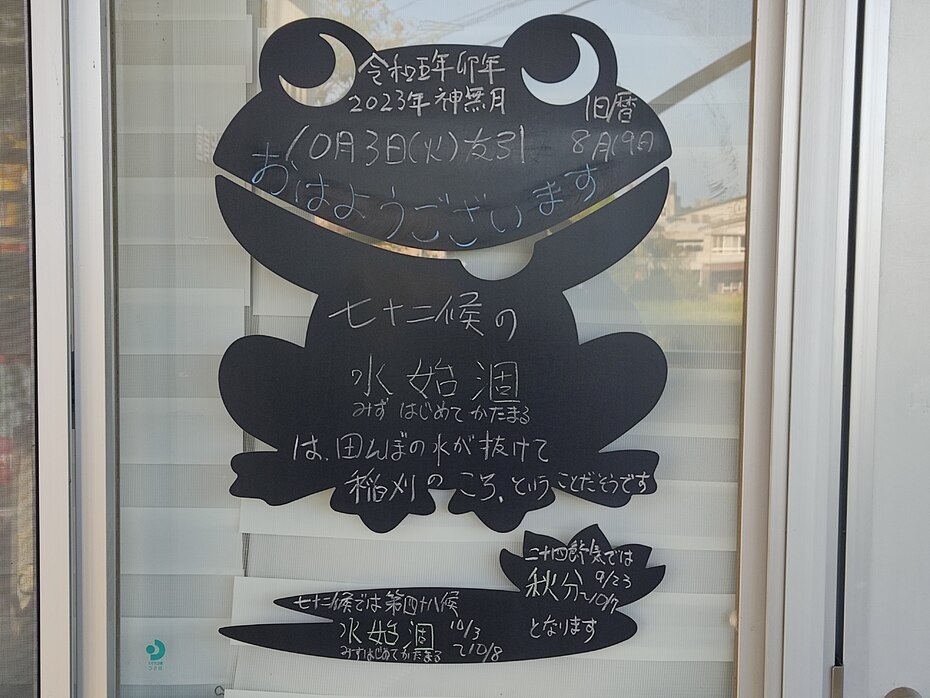 令和五年卯年
2023年神無月
旧暦
10月3日(火)友引
8月19日
おはようございます
七十二候の
水始涸
みず はじめて かたまる
は、田んぼの水が抜けて
稲刈のころ、ということだそうです
二十四節気では
秋分 9/23
~10/7
となります
七十二候では第四十八候
水始涸 10/3
みずはじめてかたまる ~10/8